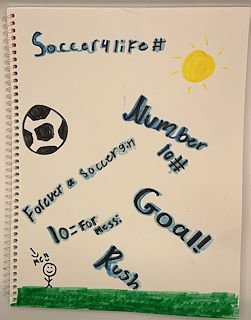 Soccer4life#
Number
10#
Forever a soccer girl
Goal!
10=For messi
Rush